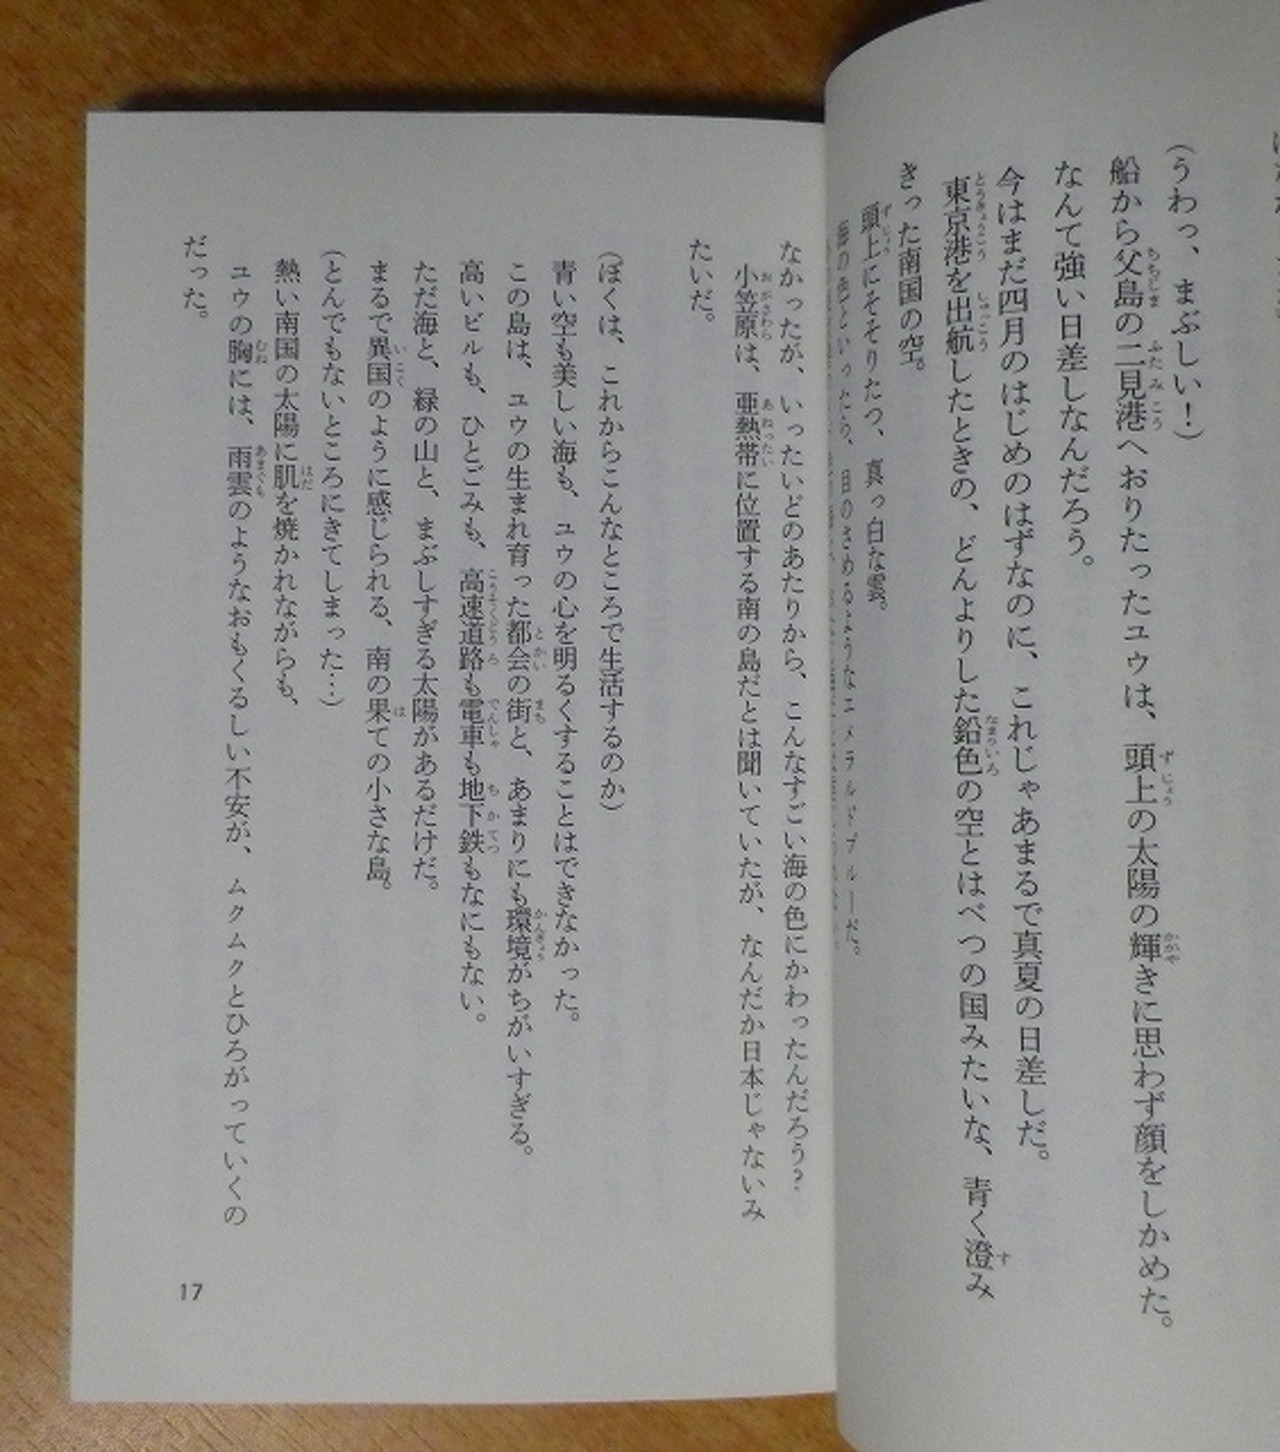 (うわっ、まぶしい！)
船から父島の二見港へおりたったユウは、頭上の太陽の輝きに思わず顔をしかめた。
なんて強い日差しなんだろう。
今はまだ四月のはじめのはずなのに、これじゃあまるで真夏の日差しだ。
東京港を出航したときの、どんよりした鉛色の空とはべつの国みたいな、青く澄み
きった南国の空。
頭上にそそりたつ、真っ白な雲。
海の色といったら、目のさめるようなエメラルドブルーだ。
なかったが、いったいどのあたりから、こんなすごい海の色にかわったんだろう？
小笠原は、亜熱帯に位置する南の島だとは聞いていたが、なんだか日本じゃないみ
たいだ。
(ぼくは、これからこんなところで生活するのか)
青い空も美しい海も、ユウの心を明るくすることはできなかった。
この島は、ユウの生まれ育った都会の街と、あまりにも環境がちがいすぎる。
高いビルも、ひとごみも、高速道路も電車も地下鉄もなにもない。
ただ海と、緑の山と、まぶしすぎる太陽があるだけだ。
まるで異国のように感じられる、南の果ての小さな島。
(とんでもないところにきてしまった…)
熱い南国の太陽に肌を焼かれながらも、
ユウの胸には、雨雲のようなおもくるしい不安が、ムクムクとひろがっていくの
だった。
17